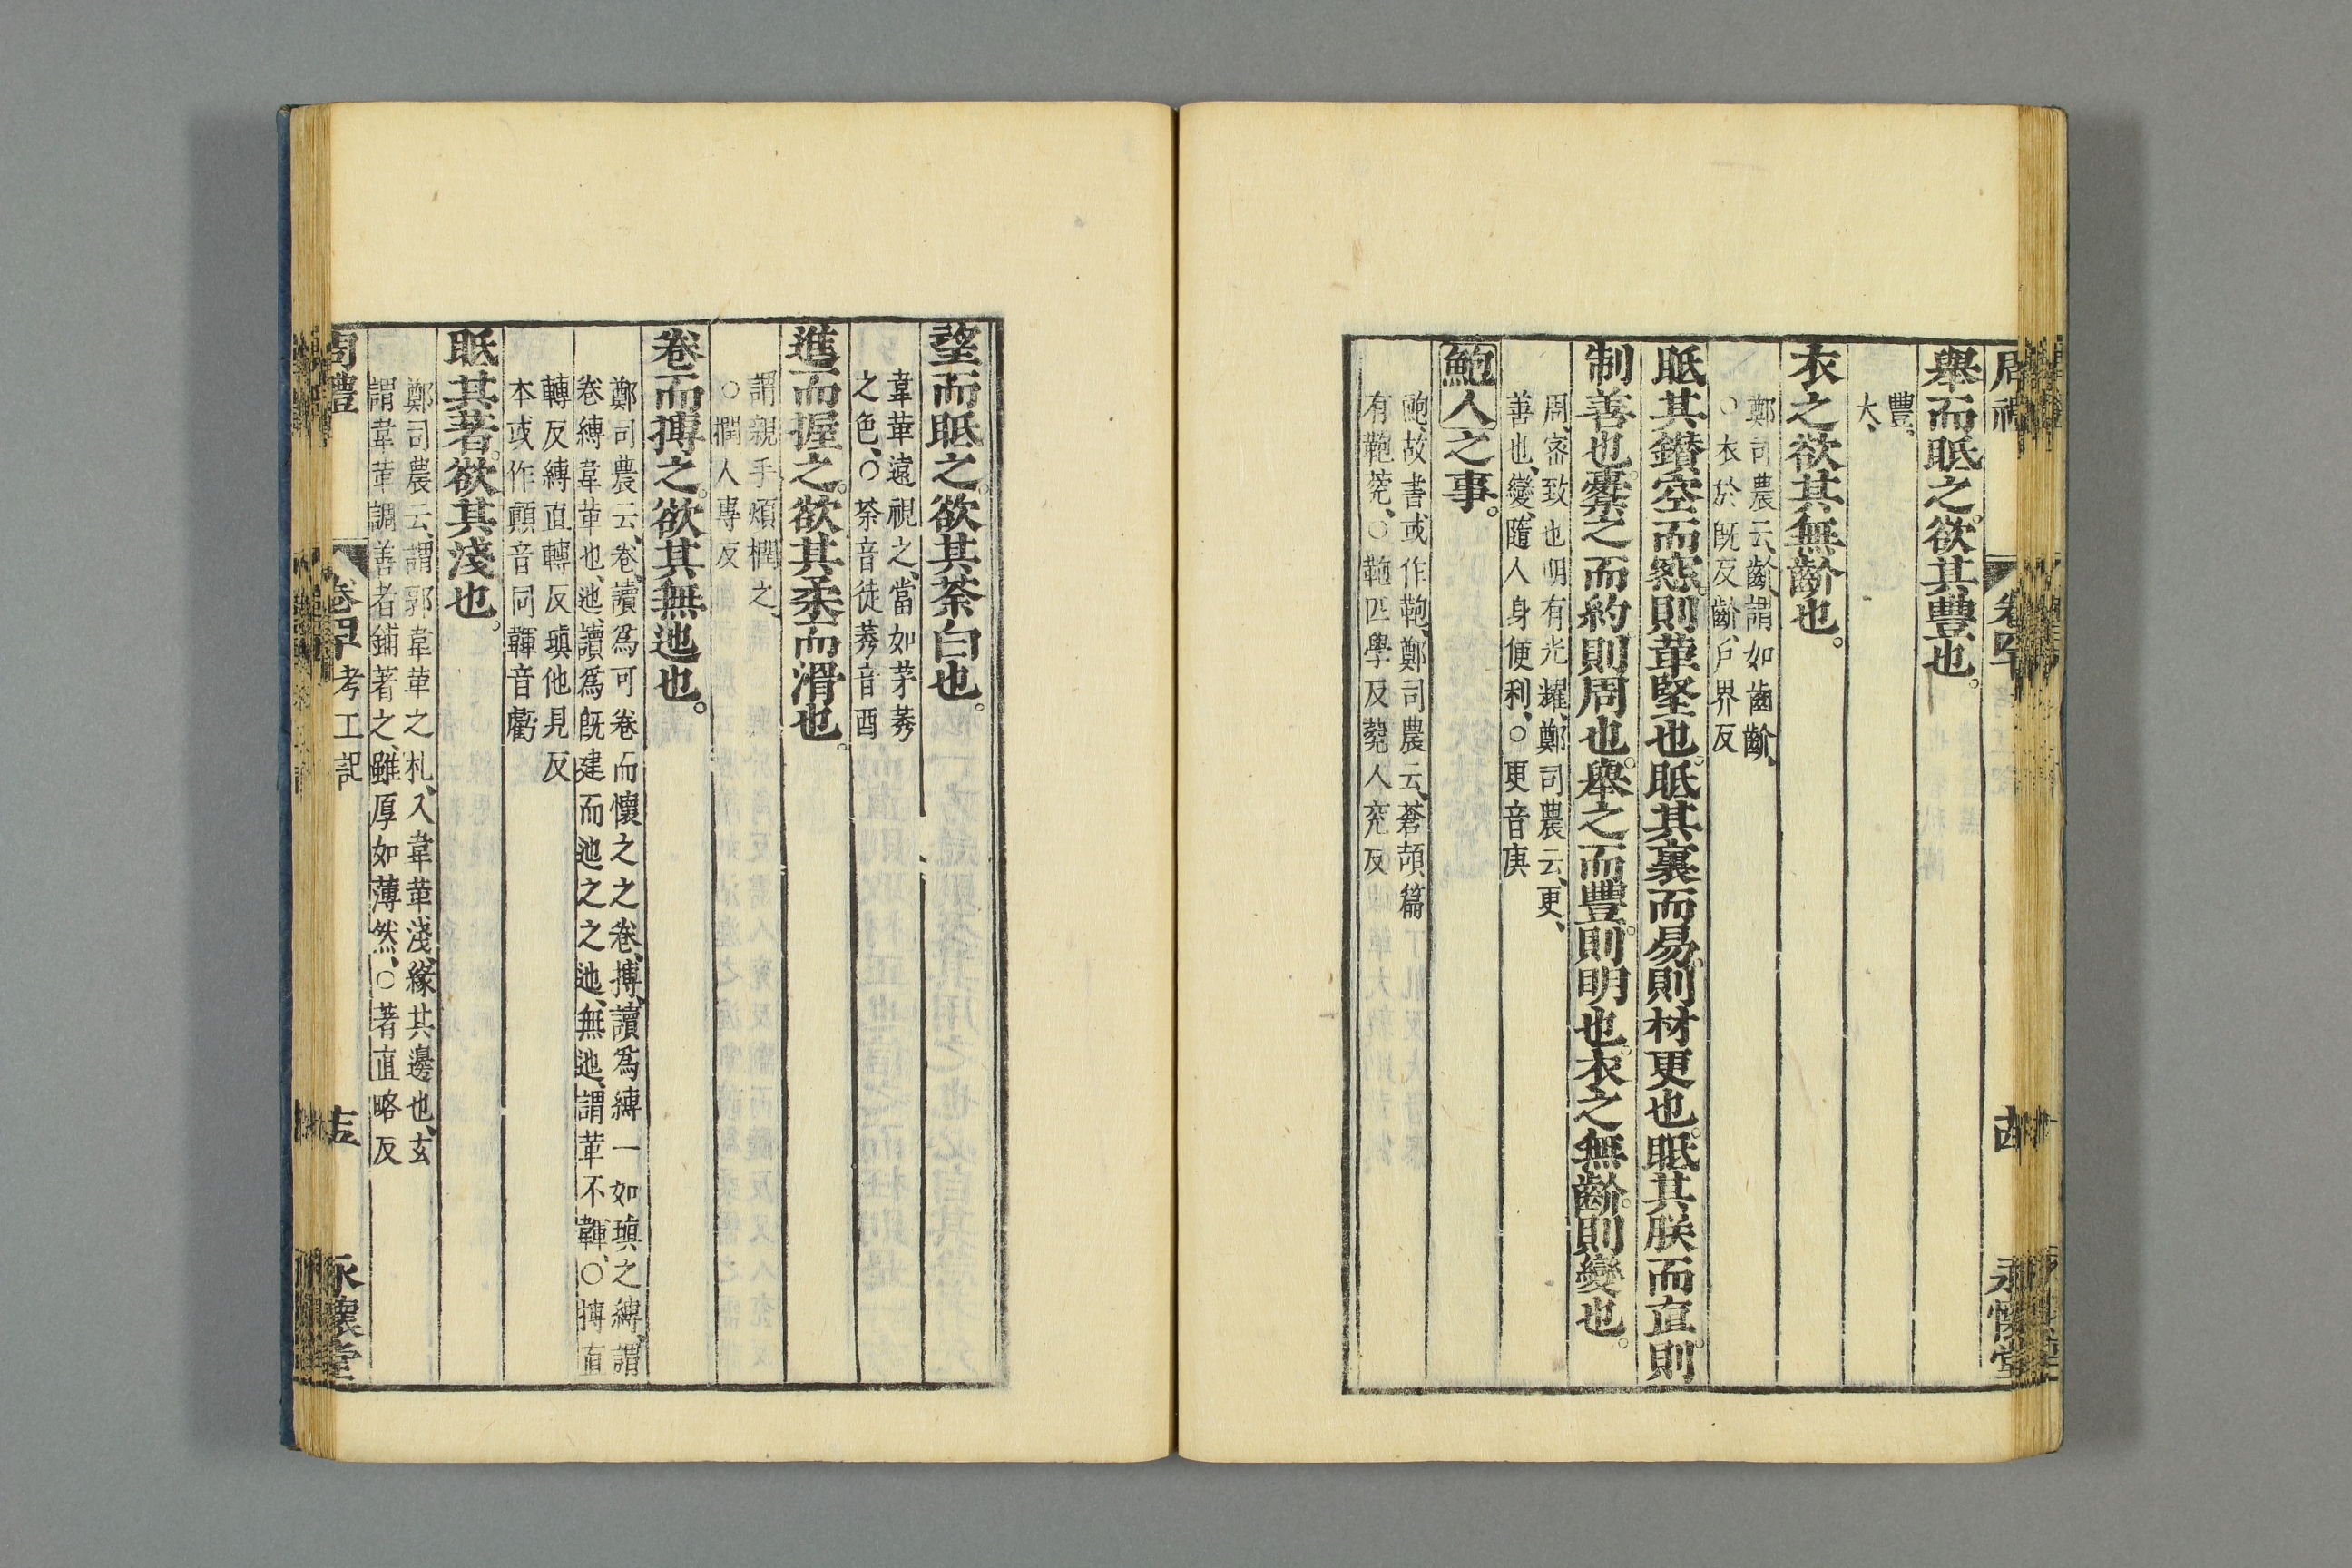 舉而眡之。欲其豐也。
豐。
大、
衣之欲其無齘也。
鄭司農云、齘、謂如齒齘、
○衣於既反齘、戶界反
眡其鑚空而窓。則革堅也。眡其裏而易。則材更也。眡其朕而直。則
制善也。櫜之而約則周也。舉之而豐。則明也。衣之無齘。則變也。
周、密致也明有光耀、鄭司農云、更、
善也、變、隨人身便利、○更音庚
鮑人之事。
鮑、故書或作鞄、鄭司農云、蒼頡篇
有鞄㼱、○鞄匹學反㼱人兖反
望而眡之。欲其荼白也。
韋革遠視之、當如茅莠
之色、○荼音徒莠音酉
進而握之。欲其柔而滑也。
謂親手煩撋之、
○撋人專反
卷而摶之。欲其無迆也。
鄭司農云、卷、讀爲可卷而懷之之卷、摶、讀爲縛一如瑱之縛、謂
卷縛韋革也、迆、讀爲既建而迆之之迆、無迆、謂革不䩵、○摶直
轉反縛直轉反瑱他見反
本或作顛音同䩵音虧
眡其著。欲其淺也。
鄭司農云、謂郭韋革之札、入韋革淺、緣其邊也、玄
謂韋革調善者鋪著之、雖厚如薄然、○著直略反
周禮
卷四十 考工記
永懷堂